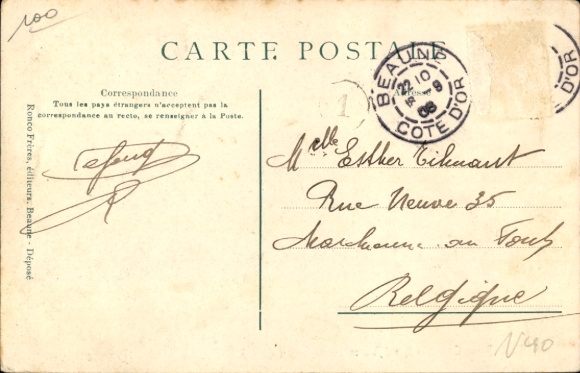 100
CARTE POSTALE
BEAUNE
22 10
9
08
COTE D'OR
D'OR
Correspondance
Adresse
Tous les pays étrangers n'acceptent pas la
correspondance au recto, se renseigner à la Poste.
1
Ronco Frères, éditeurs, Beaune - Déposé
Melle Esther Tilmant
Rue Neuve 35
Marchienne au Pont
Belgique
N40